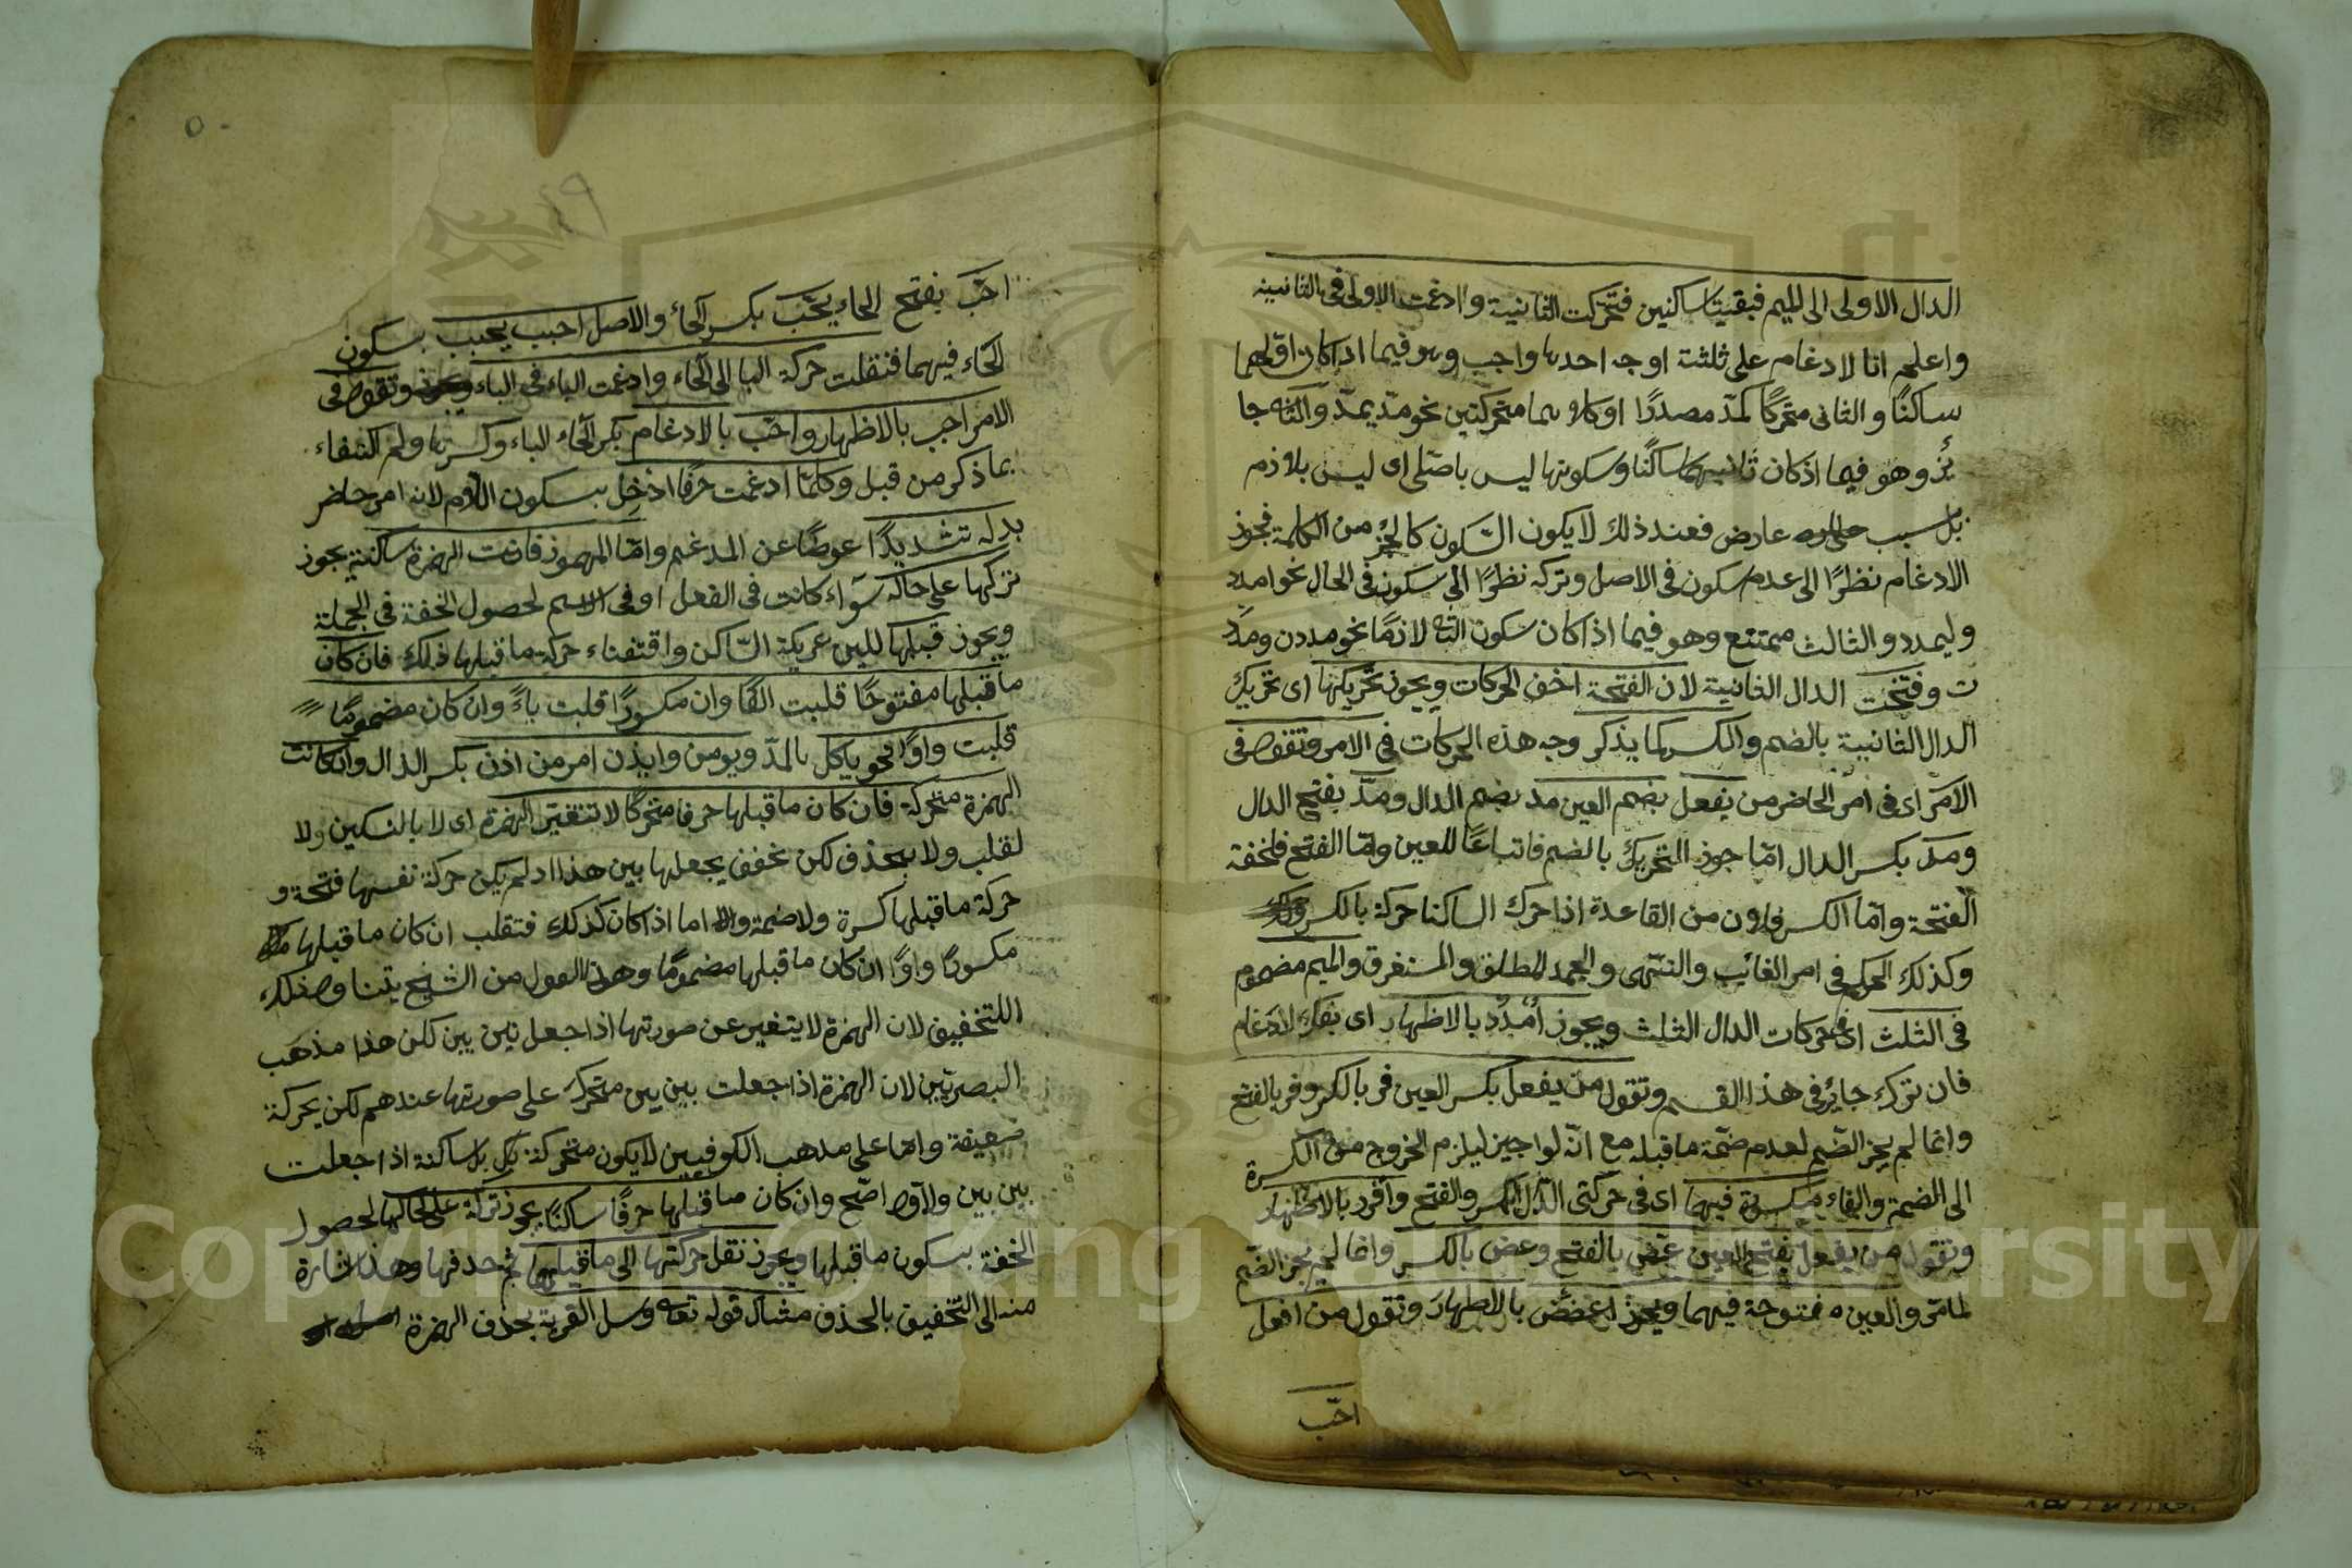 الدال الاولى الى الميم فبقيتا ساكنين فتحركت الثانية وادغمت الاولى فى الثانية
واعلم ان الادغام على ثلثة اوجه احدها واجب وهو فيما اذا كان اولهما
ساكنًا والثانى متحركًا كمدّ مصدرًا او كلاهما متحركتين نحو مدّ يمدّ والثانى جا
ئز وهو فيما اذ كان ثانيهما ساكنًا وسكونها ليس باصلى اى ليس بلازم
بل بسبب عارض فعند ذلك لا يكون السّكون كالجزء من الكلمة فيجوز
الادغام نظرًا الى عدم سكون فى الاصل وتركه نظرًا الى سكون فى الحال نحو امدد
وليمدد والثالث ممتنع وهو فيما اذا كان سكون الثانى لازمًا نحو مددن ومدد
ت وفتحت الدال الثانية لان الفتحة اخف الحركات ويجوز تحريكها اى تحريك
الدال الثانية بالضم والكسر كما يذكر وجه هذه الحركات فى الامر وتقول فى
الامر اى فى امر الحاضر من يفعل بضم العين مد بضم الدال ومدّ بفتح الدال
ومدّ بكسر الدال امّا جوز التحريك بالضم فاتباعًا للعين وامّا الفتح فلخفة
الفتحة وامّا الكسر فلان من القاعدة اذا حرك الساكنا حركة بالكسر
وكذلك الحكم فى امر الغائب والنهى والجمد المطلق والمستغرق والميم مضموم
فى الثلث اى فى حركات الدال الثلث ويجوز اُمْدُدْ بالاظهار اى بفك الادغام
فان تركه جائز فى هذا القسم وتقول من يفعل بكسر العين فر بالكسر وفر بالفتح
وانما لم يجز الضّم لعدم ضمّة ما قبله مع انّه لو اجيز ليلزم الخروج من الكسرة
الى الضمة والفاء مكسورة فيهما اى فى حركتى الدال الكسر والفتح وافرر بالاظهار
وتقول من يفعل بفتح العين عضّ بالفتح وعضّ بالكسر وانما لم يجز الضّم
لما مرّ والعين مفتوحة فيهما ويجوز اعضض بالاظهار وتقول من افعل
احبّ
احبّ بفتح الحاء يحبّ بكسر الحاء والاصل احبب يحبب بسكون
الحاء فيهما فنقلت حركة البا الى الحاء وادغمت الباء فى الباء وتقول فى
الامر احبب بالاظهار واحبّ بالادغام بكسر الحاء الباء وكسرها ولم اكتفاء
بما ذكر من قبل وكلّما ادغمت حرفًا ادخل بسكون اللام لانه امر حاضر
بدله تشديدًا عوضًا عن المدغم وامّا المهموز فان كانت الهمزة ساكنة يجوز
تركها على حاله سواء كانت فى الفعل او فى الاسم لحصول الخفة فى الجملة
ويجوز قلبها للين عريكة السّاكن واقتضاء حركة ما قبلها ذلك فان كان
ما قبلها مفتوحًا قلبت الفًا وان مكسورًا قلبت ياءً وان كان مضمومًا
قلبت واوًا نحو ياكل بالمدّ ويومن وايذن امر من اذن بكسر الذال وان كانت
الهمزة متحركة فان كان ما قبلها حرفا متحركًا لا تتغير الهمزة اى لا بالتسكين ولا
لقلب ولا بحذف لكن تخفف بجعلها بين هذا اذ لم يكن حركة نفسها فتحة و
حركة ما قبلها كسرة ولا ضمة والا اما اذا كان كذلك فتقلب ان كان ما قبلها
مكسورًا واوًا ان كان ما قبلها مضمومًا وهذا القول من الشيخ يتناول ذلك
اللتخفيف لان الهمزة لا يتغير عن صورتها اذا جعل بين بين لكن هذا مذهب
البصريّين لان الهمزة اذا جعلت بين بين متحركة على صورتها عندهم لكن بحركة
ضعيفة وامّا على مذهب الكوفيين لا يكون متحركة بل ساكنة اذا جعلت
بين بين والاول اصّح وان كان ما قبلها حرفًا ساكنًا يجوز تركه على حالها لحصول
الخفة بسكون ما قبلها ويجوز نقل حركتها الى ما قبلها ثم حذفها وهذا اشارة
منه الى التخفيف بالحذف مثال قوله تعه وسل القرية بحذف الهمزة